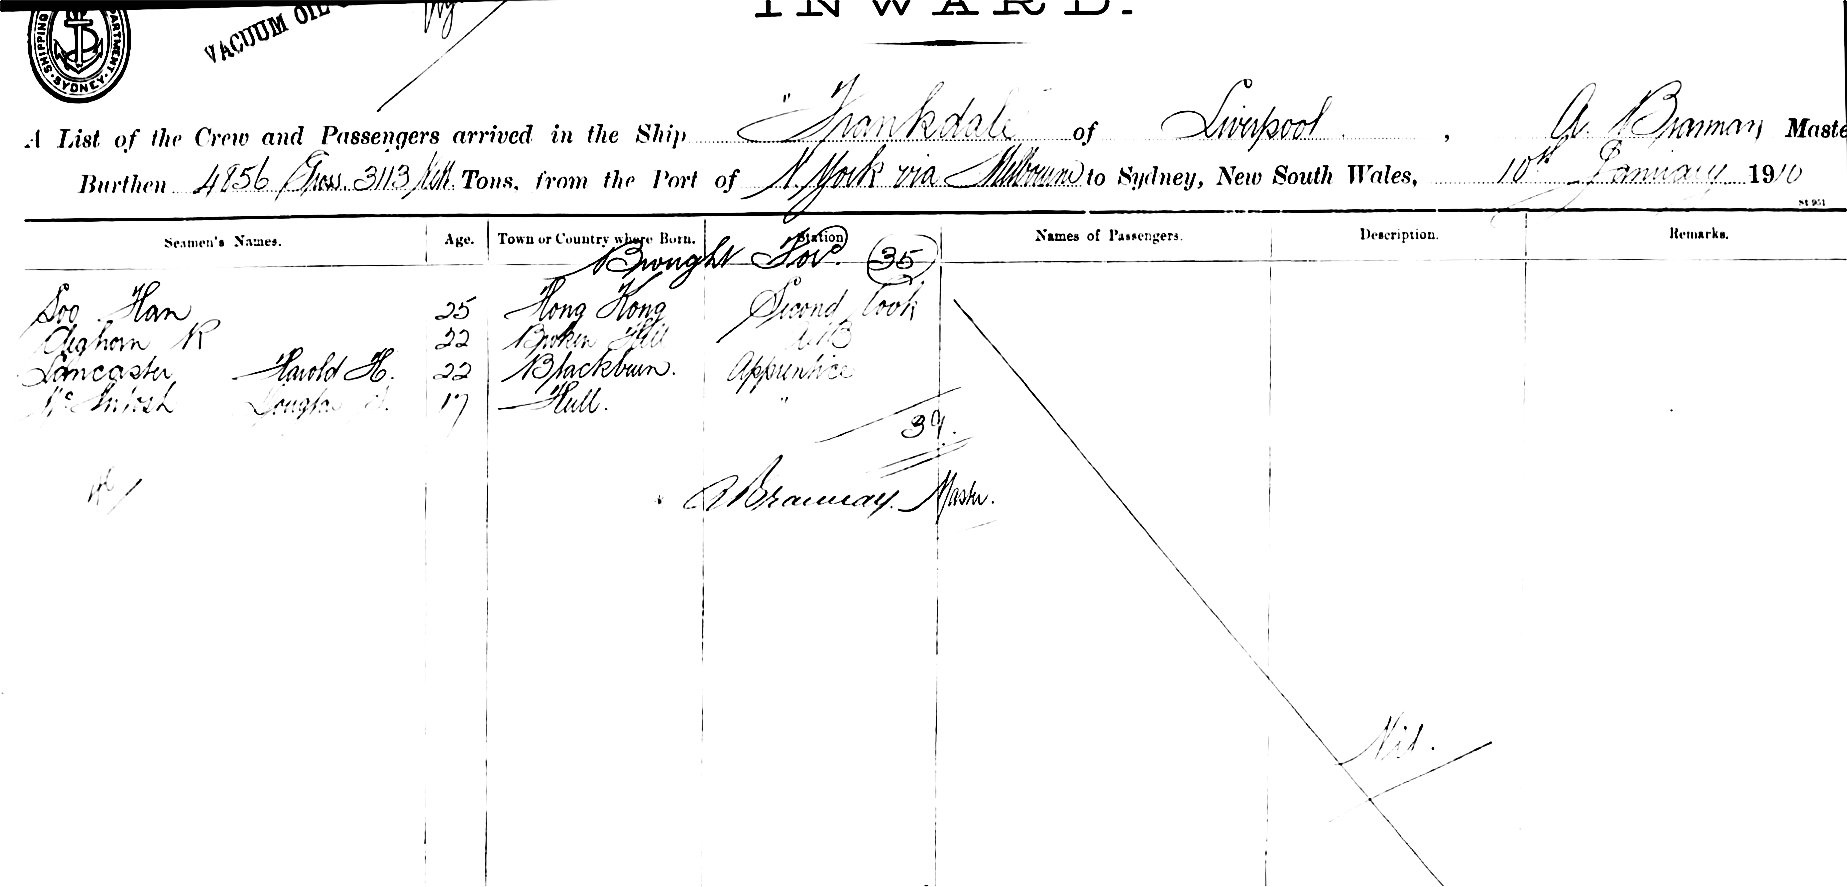 SHIPPING DEPARTMENT. SYDNEY
VACUUM OIL
INWARD.
A List of the Crew and Passengers arrived in the Ship "Frankdale of Liverpool. , A. Brannan Maste
Burthen 4856 Gross. 3113 Nett. Tons, from the Port of N. York via Melbourne to Sydney, New South Wales, 10th January 1910
St 951
Seamen's Names. Age. Town or Country where Born. Station Names of Passengers. Description. Remarks.
Brought For. 35
Soo Han 25 Hong Kong Second Cook
Cleghorn R 22 Broken Hill A.B
Lancaster Harold H. 22 Blackburn. Apprentice
McIntosh Douglas 17 Hull. "
39.
Master.
Nil.